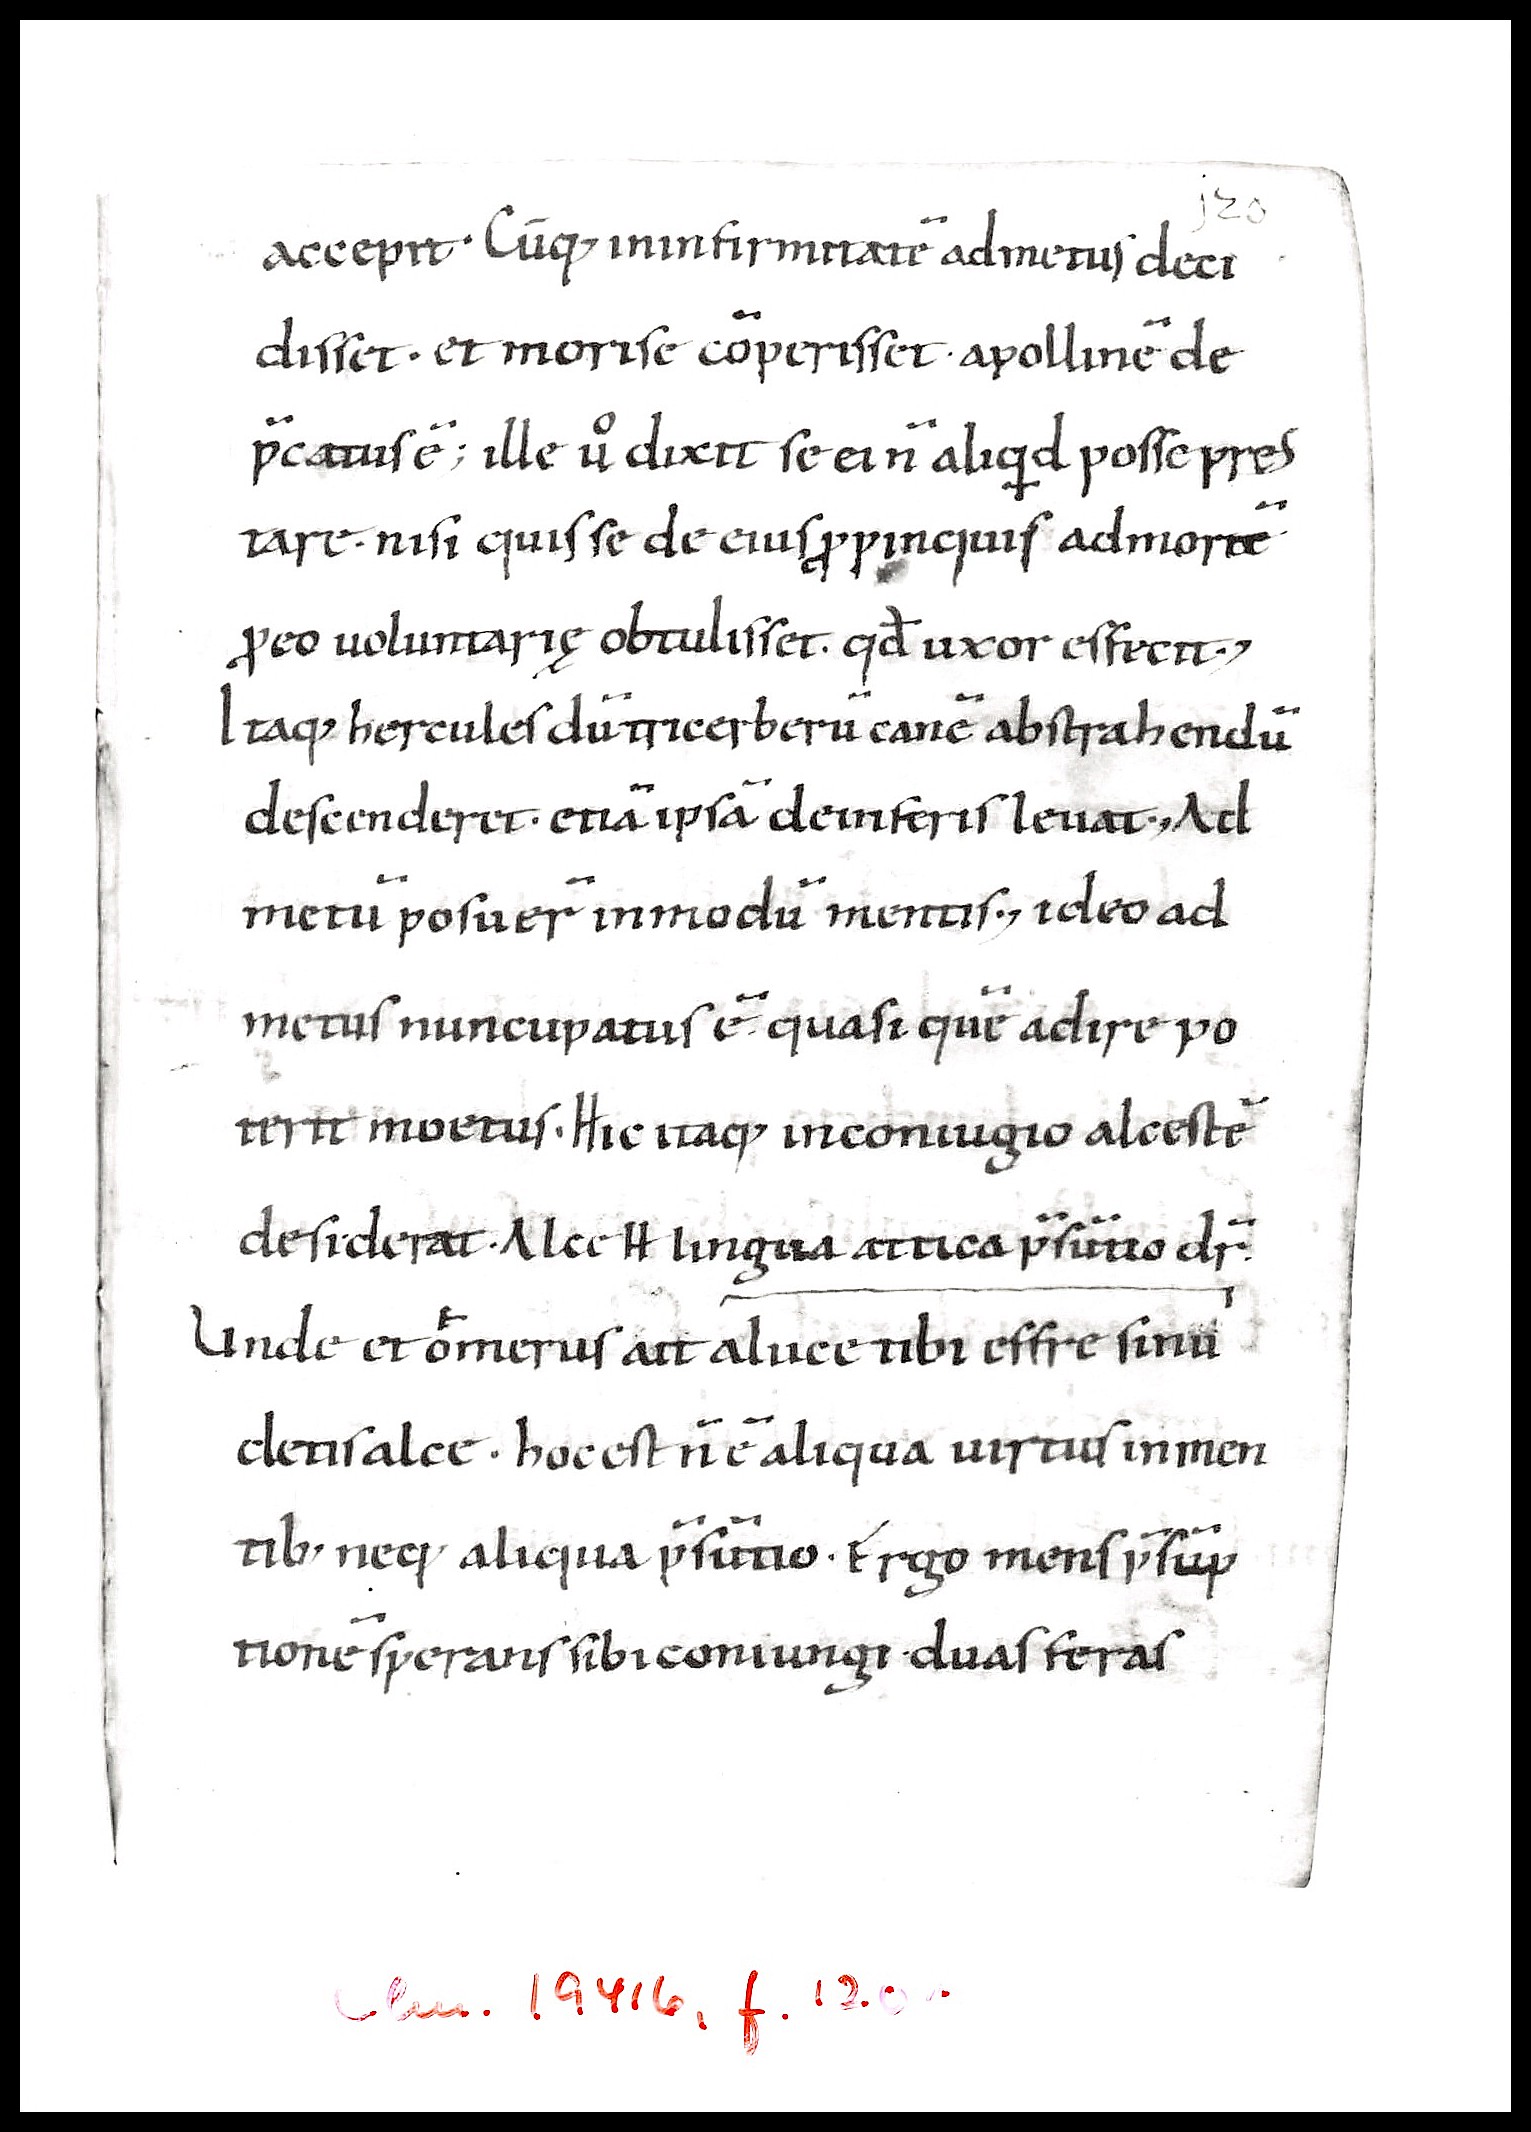 j20
accepit· Cūq; ininfirmitatē admetus deci
disset· et morise cōperisset· apollinē de
p̄catus ē; ille uͦ dixit se ei n̄ aliqd posse pres
tare· nisi quis se de eius ꝓpinquis admortē
ꝓ eo uoluntarię obtulisset· qđ uxor effecit·,
Itaq; hercules dū tricerberū canē abstrahendū
descenderet· etiā ipsā deinferis leuat·, Ad
metū posuer̄ inmodū mentis·, ideo ad
metus nuncupatus ē· quasi quē adire po
terit moetus· Hic itaq; inconiugio alcestē
desiderat· Alce H lingua attica p̄sūtio dr̄·
Unde et omerus ait aluce tibi effre sinu
cletis alce· hoc est n̄ ē aliqua uirtus inmen
tib; neq; aliqua p̄sūtio· Ergo mens p̄sūp
tionē sperans sibi coniungi· duas feras
clm. 19416, f. 120